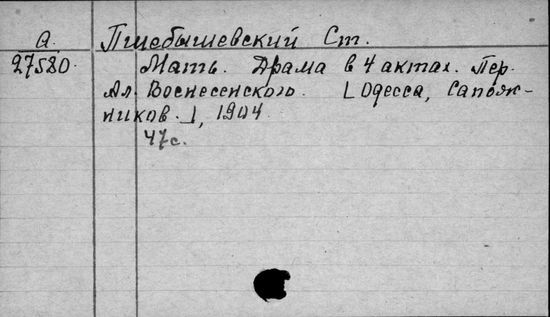 а. Пшебышевский Ст.
27580. Мать. Драма в 4 актах. Пер.
Ал. Вознесенского. [Одесса, Сапож-
ников.], 1904
47с.